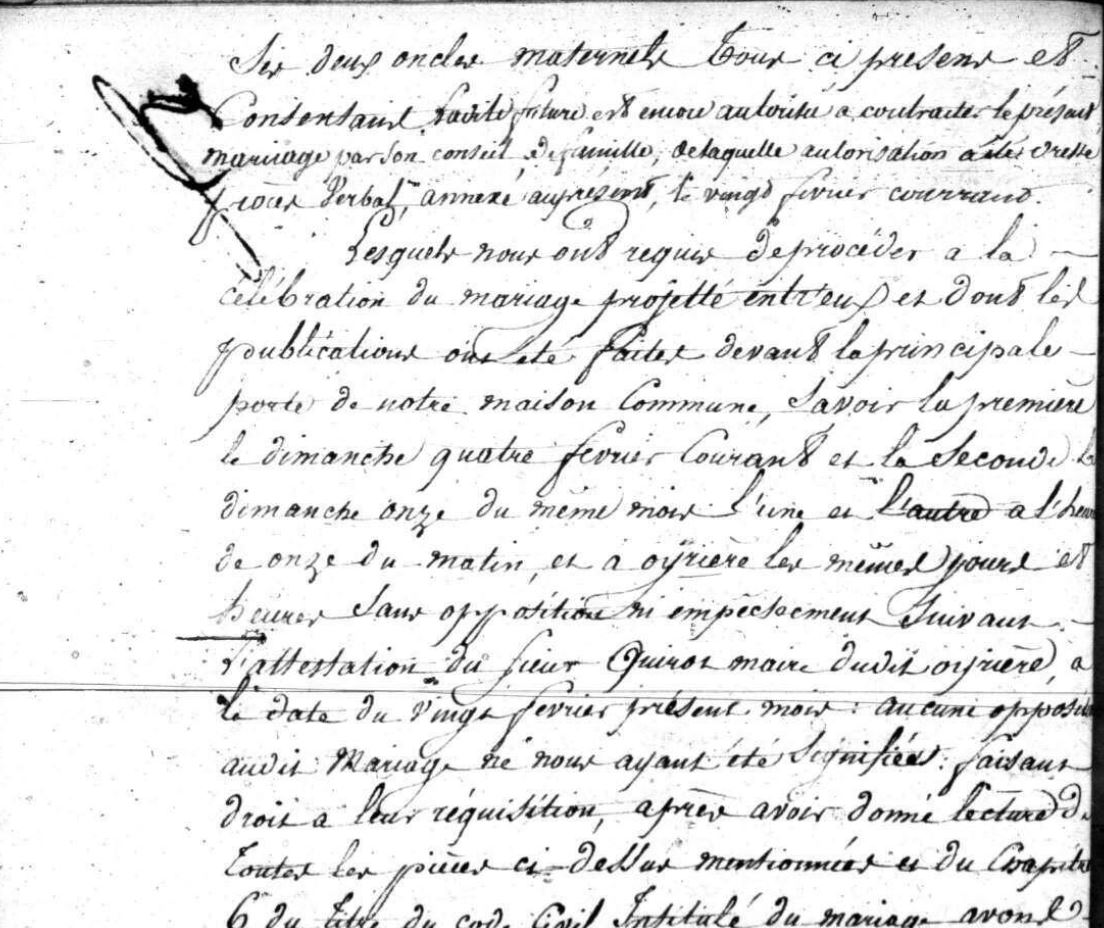 ses deux oncles maternels tous ci presens et
Consentant ladite future est encore autorisée a contracter le présent
mariage par son conseil de famille, de laquelle autorisation a été dressé
procès verbal, annexé au présent, le vingt fevrier courrant.
Lesquels nous ont requis de procéder a la
célébration du mariage projetté entr'eux et dont les
publications ont été faites devant la principale
porte de notre maison Commune, Savoir la premiere
le dimanche quatre fevrier Courant et la Seconde le
dimanche onze du même mois l'une et l'autre a l'heure
de onze du matin, et a oyrière les mêmes jours et
heures Sans opposition ni empechement Suivant
l'attestation du sieur Quirot maire dudit oyrière, a
la date du vingt fevrier présent mois : aucune opposition
audit Mariage ne nous ayant été Signifiée. faisant
droit a leur réquisition, après avoir donné lecture de
toutes les pièces ci-dessus mentionnées et du Chapitre
6 du titre du code Civil Intitulé du mariage avons